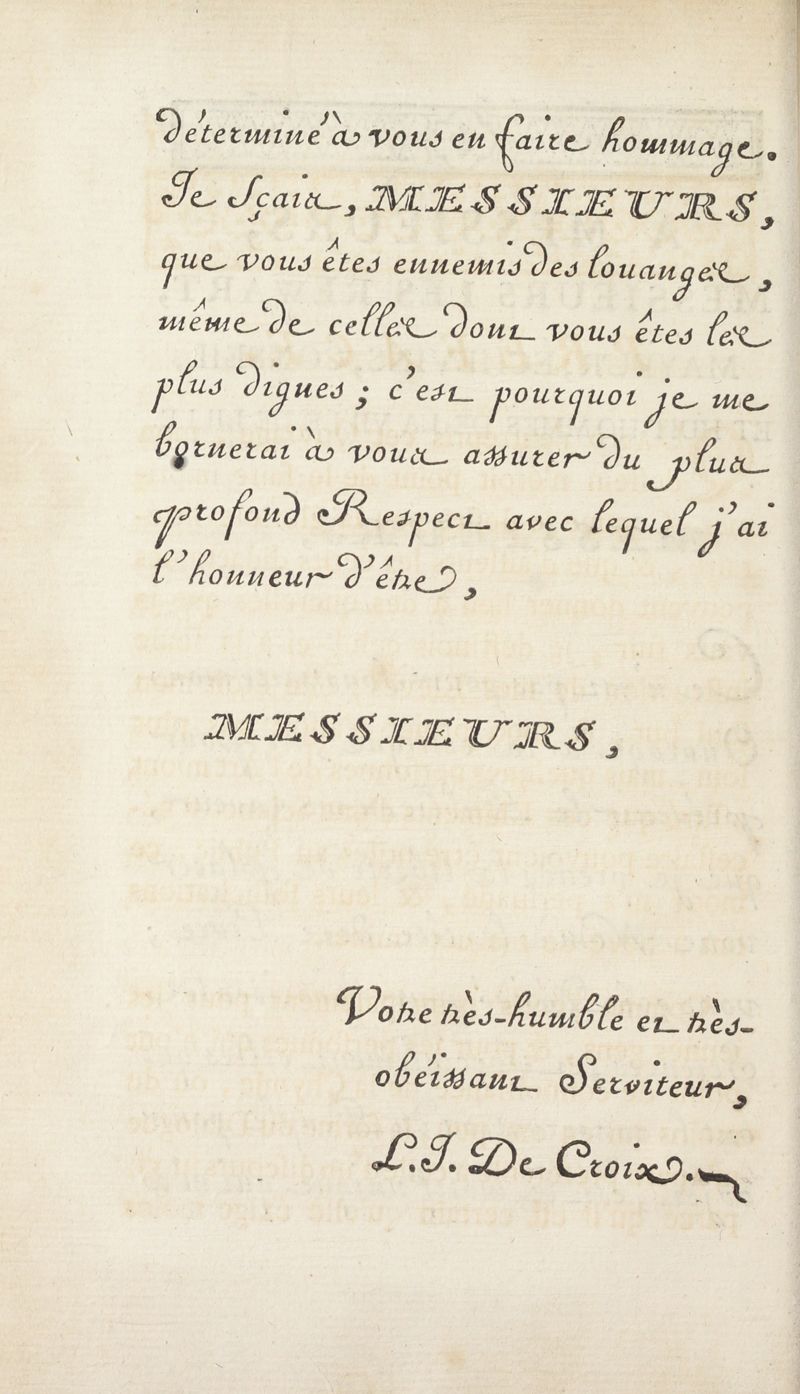 Déterminé à vous en faire hommage.
Je Sçais, MESSIEURS,
que vous êtes ennemis des louanges,
même de celles dont vous êtes les
plus dignes ; c'est pourquoi je me
bornerai à vous assurer du plus
profond Respect avec lequel j'ai
l'honneur d'être,
MESSIEURS,
Votre très-humble et très-
obéissant Serviteur,
L.J. De Croix.